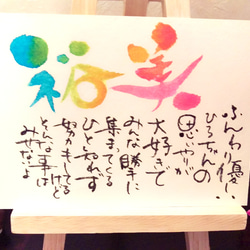 裕美
ふんわり優しい
ひろちゃんの
思いやりが
大好きで
みんな勝手に
集まってくる
ひと知れず
努力をしてるけど
そんな事は
みせないよ